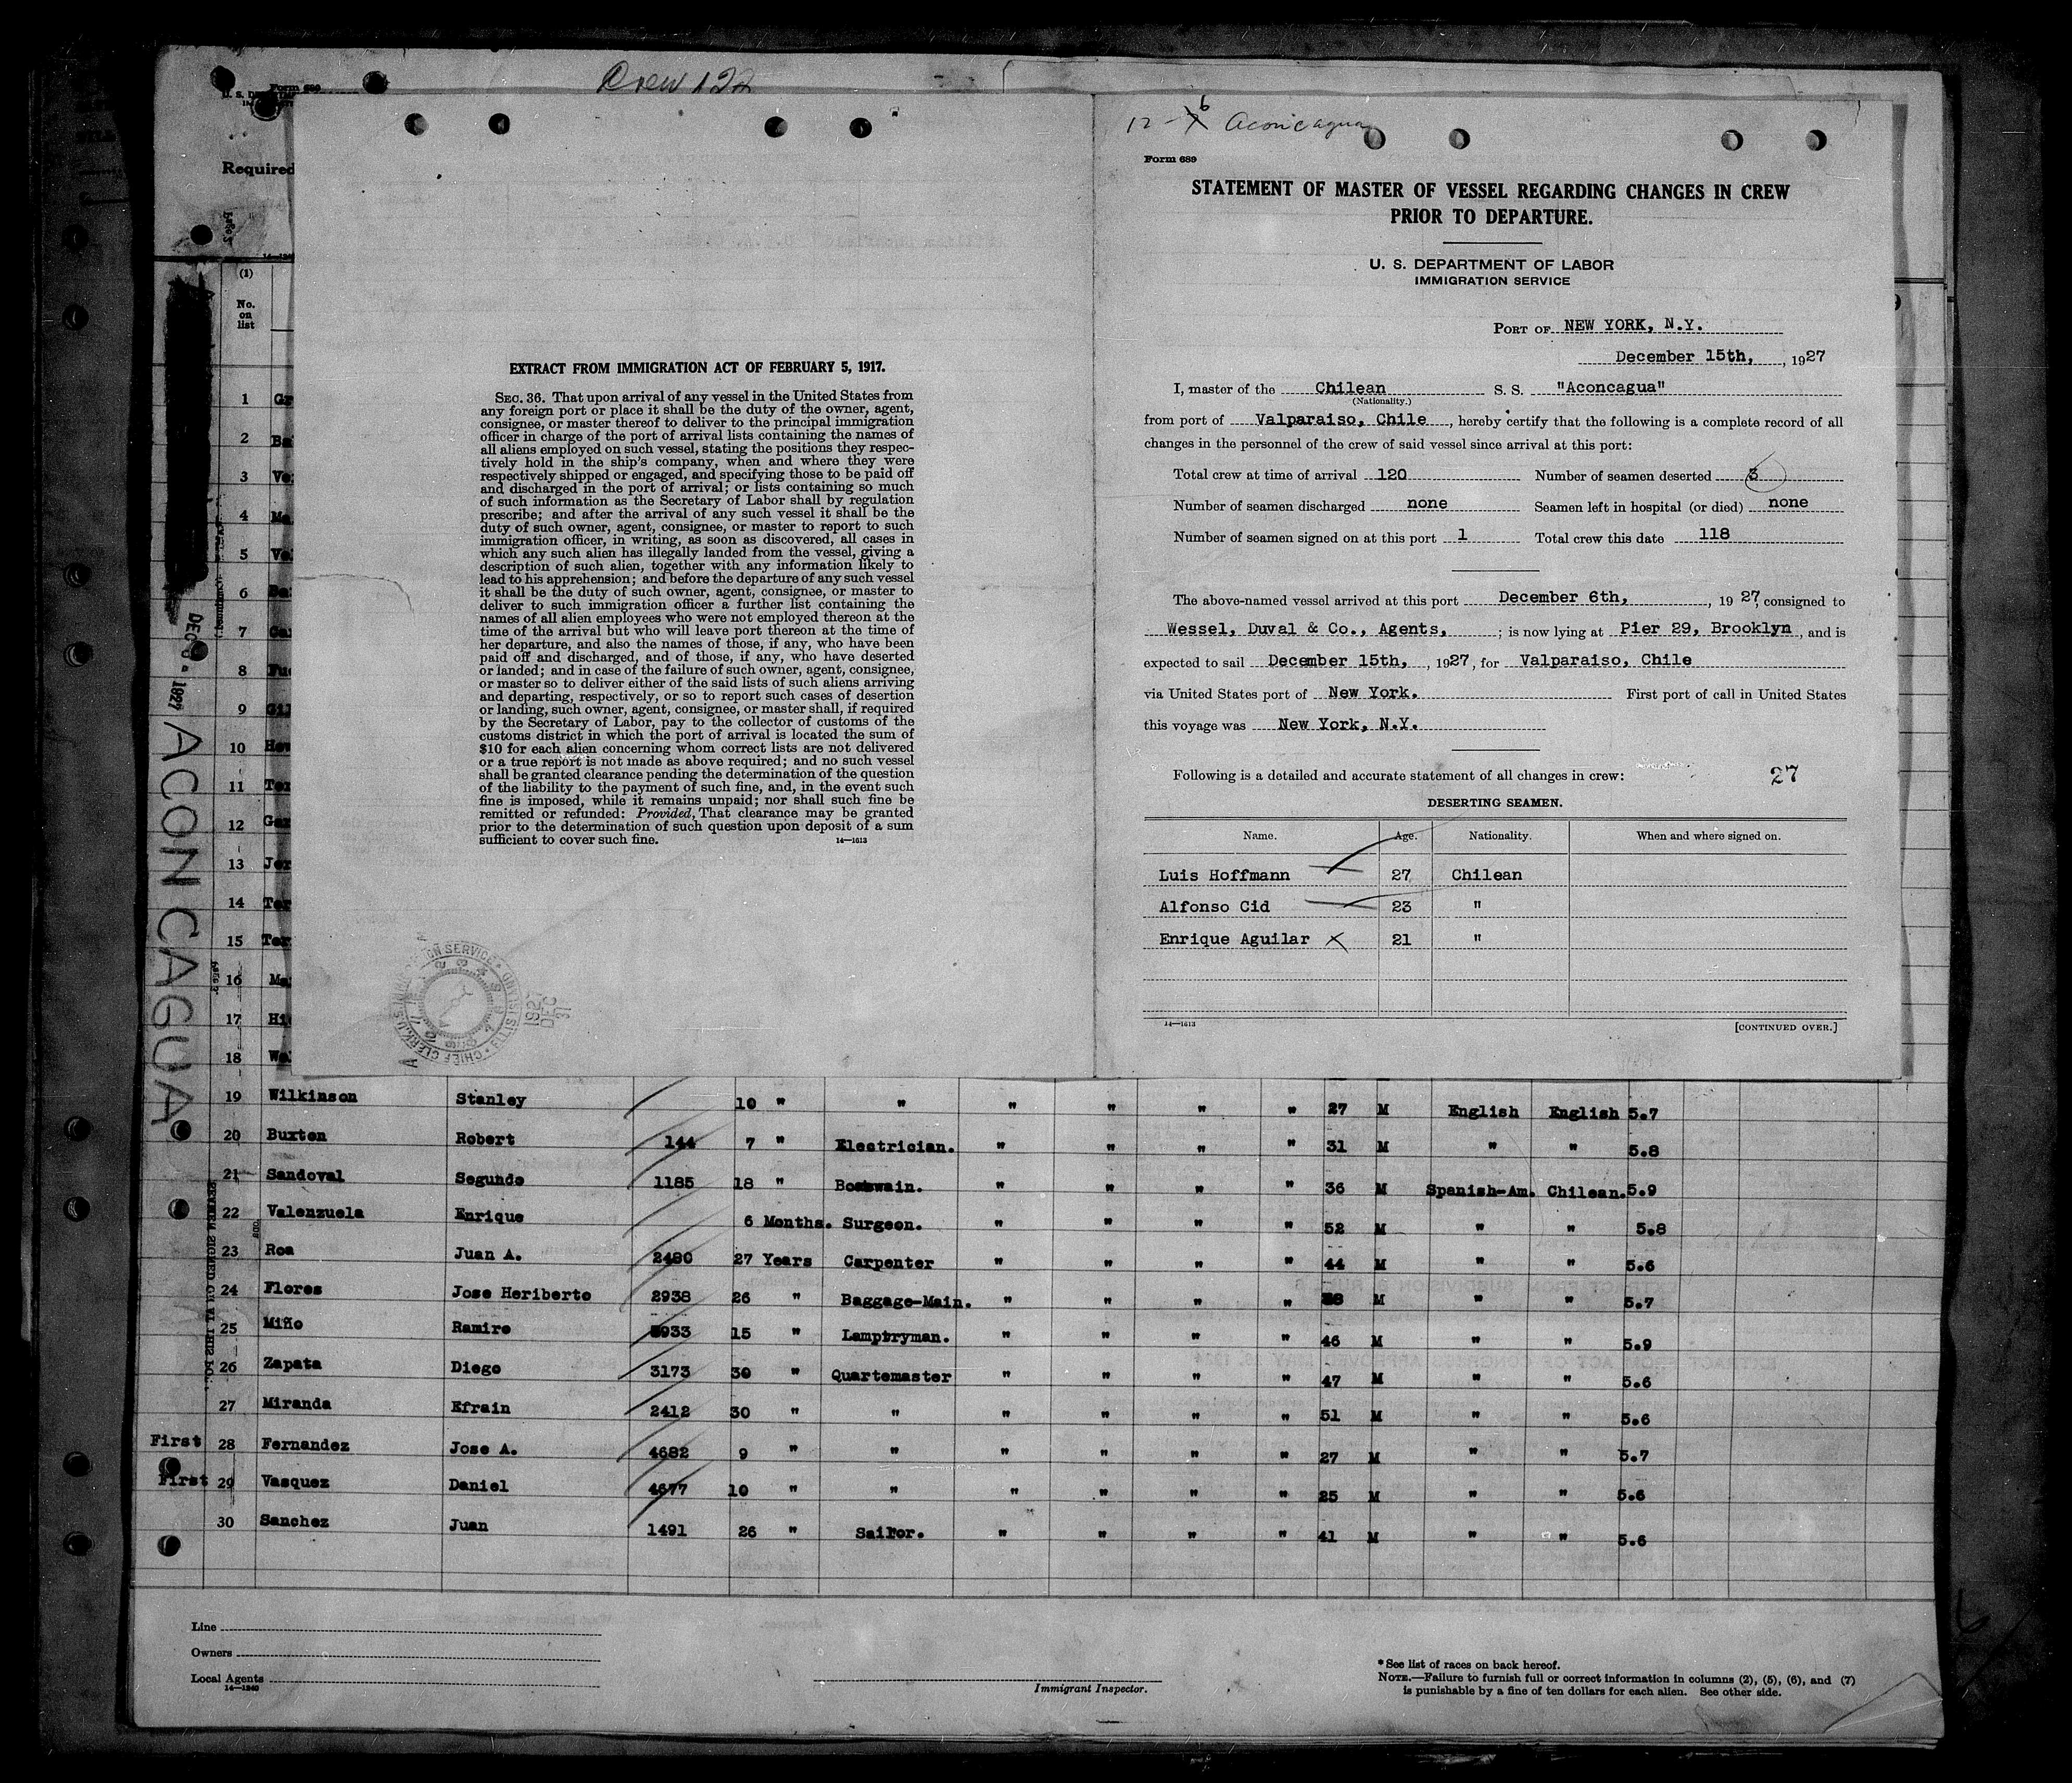 Crew 122
Form 689
Required
(1)
No.
on
list
1 Gr
2 Ba
3 Ve
4 Ma
5 Ve
6 Ba
7 Ga
8 Fu
9 Gil
10 Hew
11 Tor
12 Gar
13 Jer
14 Tor
15 Tor
16 Ma
17 Hi
18 We
DEC 6 1927
ACONCAGUA
EXTRACT FROM IMMIGRATION ACT OF FEBRUARY 5, 1917.
SEC. 36. That upon arrival of any vessel in the United States from
any foreign port or place it shall be the duty of the owner, agent,
consignee, or master thereof to deliver to the principal immigration
officer in charge of the port of arrival lists containing the names of
all aliens employed on such vessel, stating the positions they respec-
tively hold in the ship's company, when and where they were
respectively shipped or engaged, and specifying those to be paid off
and discharged in the port of arrival; or lists containing so much
of such information as the Secretary of Labor shall by regulation
prescribe; and after the arrival of any such vessel it shall be the
duty of such owner, agent, consignee, or master to report to such
immigration officer, in writing, as soon as discovered, all cases in
which any such alien has illegally landed from the vessel, giving a
description of such alien, together with any information likely to
lead to his apprehension; and before the departure of any such vessel
it shall be the duty of such owner, agent, consignee, or master to
deliver to such immigration officer a further list containing the
names of all alien employees who were not employed thereon at the
time of the arrival but who will leave port thereon at the time of
her departure, and also the names of those, if any, who have been
paid off and discharged, and of those, if any, who have deserted
or landed; and in case of the failure of such owner, agent, consignee,
or master so to deliver either of the said lists of such aliens arriving
and departing, respectively, or so to report such cases of desertion
or landing, such owner, agent, consignee, or master shall, if required
by the Secretary of Labor, pay to the collector of customs of the
customs district in which the port of arrival is located the sum of
$10 for each alien concerning whom correct lists are not delivered
or a true report is not made as above required; and no such vessel
shall be granted clearance pending the determination of the question
of the liability to the payment of such fine, and, in the event such
fine is imposed, while it remains unpaid; nor shall such fine be
remitted or refunded: Provided, That clearance may be granted
prior to the determination of such question upon deposit of a sum
sufficient to cover such fine. 14—1613
1927 DEC 31
12-6 Aconcagua
Form 689
STATEMENT OF MASTER OF VESSEL REGARDING CHANGES IN CREW
PRIOR TO DEPARTURE.
U. S. DEPARTMENT OF LABOR
IMMIGRATION SERVICE
PORT OF NEW YORK, N.Y.
December 15th, , 1927
I, master of the Chilean S. S. "Aconcagua"
(Nationality.)
from port of Valparaiso, Chile , hereby certify that the following is a complete record of all
changes in the personnel of the crew of said vessel since arrival at this port:
Total crew at time of arrival 120 Number of seamen deserted 3
Number of seamen discharged none Seamen left in hospital (or died) none
Number of seamen signed on at this port 1 Total crew this date 118
The above-named vessel arrived at this port December 6th, , 19 27, consigned to
Wessel, Duval & Co., Agents, ; is now lying at Pier 29, Brooklyn , and is
expected to sail December 15th, , 1927, for Valparaiso, Chile
via United States port of New York. First port of call in United States
this voyage was New York, N.Y.
Following is a detailed and accurate statement of all changes in crew: 27
DESERTING SEAMEN.
Name. Age. Nationality. When and where signed on.
Luis Hoffmann 27 Chilean
Alfonso Cid 23 "
Enrique Aguilar X 21 "
14—1613 [CONTINUED OVER.]
19 Wilkinson Stanley 10 " " " " " " 27 M English English 5.7
20 Buxton Robert 144 7 " Electrician. " " " " 31 M " " 5.8
21 Sandoval Segundo 1185 18 " Boatswain. " " " " 36 M Spanish-Am. Chilean. 5.9
22 Valenzuela Enrique 6 Months. Surgeon. " " " " 52 M " " 5.8
23 Roa Juan A. 2480 27 Years Carpenter " " " " 44 M " " 5.6
24 Flores Jose Heriberto 2938 26 " Baggage-Main. " " " " M " " 5.7
25 Miño Ramiro 15 " Lamptryman. " " " " 46 M " " 5.9
26 Zapata Diego 3173 30 " Quartemaster " " " " 47 M " " 5.6
27 Miranda Efrain 2412 30 " " " " " " 51 M " " 5.6
First 28 Fernandez Jose A. 4682 9 " " " " " " 27 M " " 5.7
First 29 Vasquez Daniel 4677 10 " " " " " " 25 M " " 5.6
30 Sanchez Juan 1491 26 " Sailor. " " " " 41 M " " 5.6
Line
Owners
Local Agents
14—1240
Immigrant Inspector.
* See list of races on back hereof.
NOTE.—Failure to furnish full or correct information in columns (2), (5), (6), and (7)
is punishable by a fine of ten dollars for each alien. See other side.